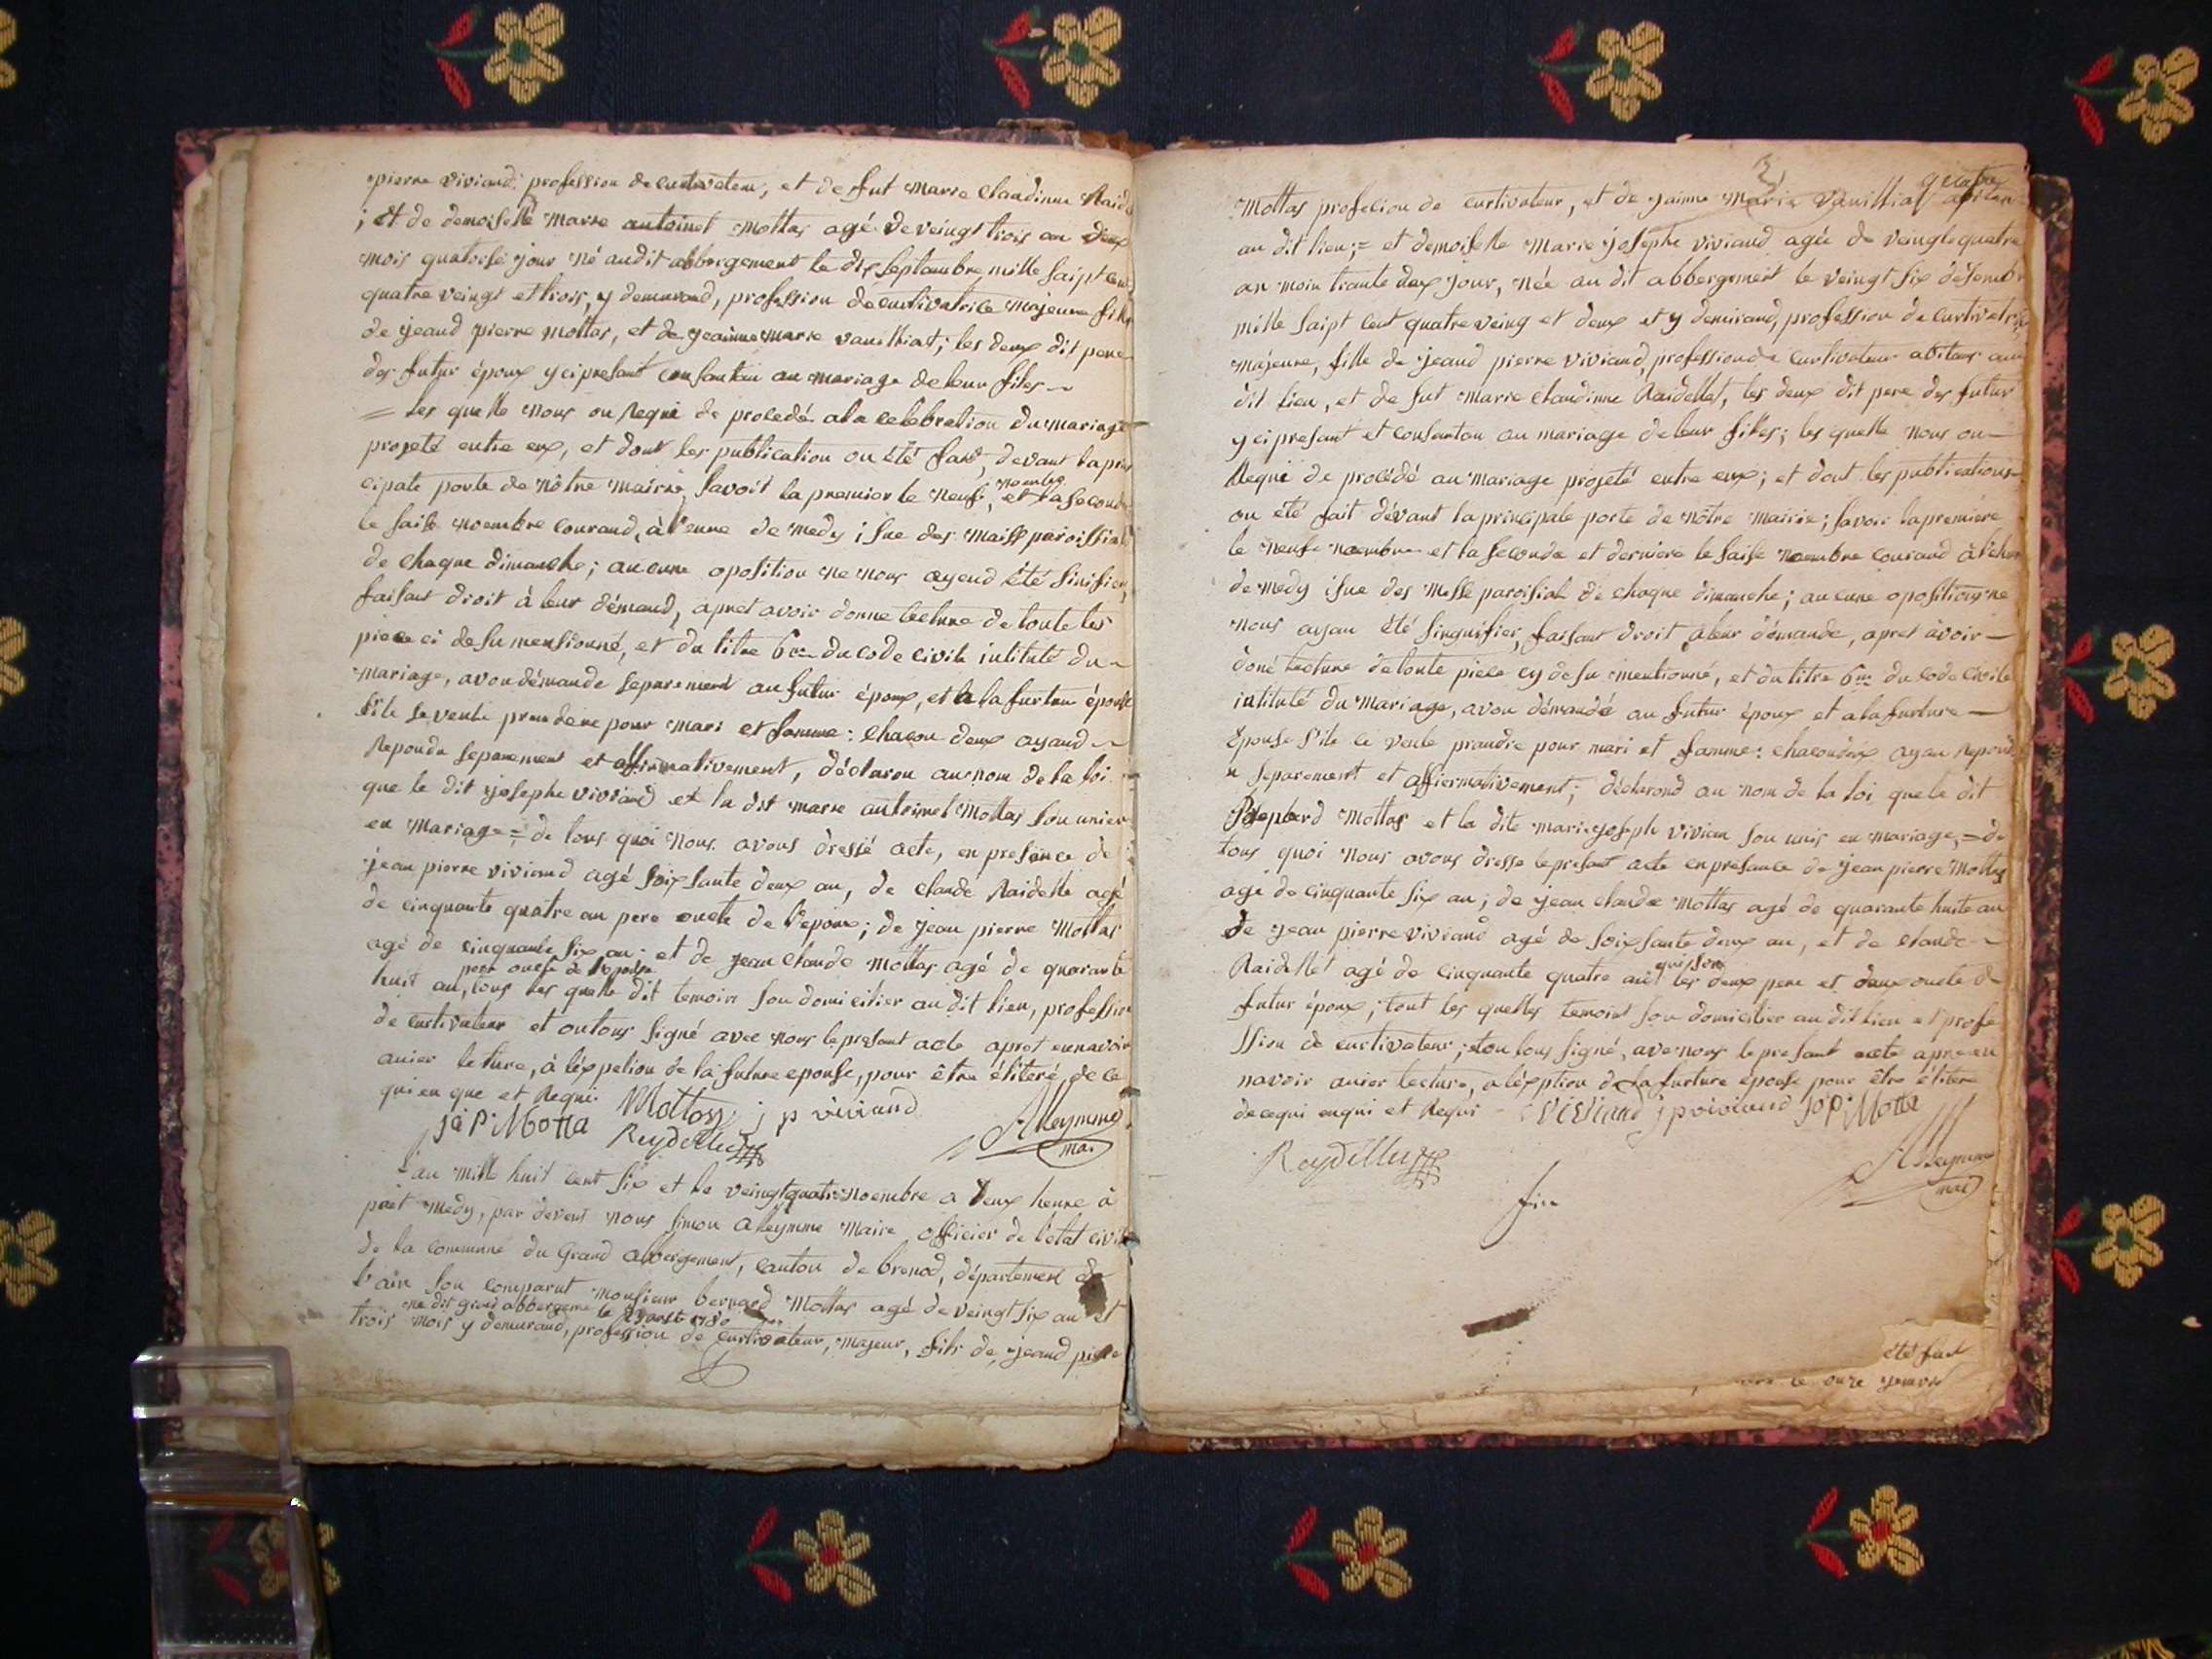 pierre viviand; profession de cuctivateur, et de fut marie claudinne Raide
; et de demoiselle marie antoinet mottas agé de veingt trois an deux
mois quatorse jour né audit abbergement le dix septambre mille saipt cent
quatre veingt et trois, y demeurand, profession de curtivatrice majeure fille
de jeaud pierre mottas, et de jeainne marie vauilliat; les deux dit pere
des futur époux y ci presant consantan au mariage de leur files ~
= les quelle nous on Requi de procedé a la celebration du mariage
projeté entre eux, et dont les publication on été fait, devant la prin
cipale porte de nôtre mairie, savoir la premier le neuf, noembre et la seconde
le saise noembre courand, à l'eure de medy isue des maiss paroissial
de chaque dimanche; aucune oposition ne nous ayend été sinifier,
faisant droit à leur démand, apret avoir donne lecture de toute les
piece ci desu mensionné, et du titre 6me du code civile intitulé du ~
mariage, avon démande separement au futur époux, et a la furture épouse
s'ile se veule prendre pour mari et famme: chacon deux ayand ~
Repondu separement et affirmativement, déclaron au nom de la loi
que le dit joseph viviand et la dit marie antoinet Mottas son unier
en mariage = de tous quoi nous avons dressé acte, en presance de
jean pierre viviand agé soixsante deux an, de claude Raidelle agé
de cinquante quatre an pere oncle de l'epoux; de jean pierre Mottas
agé de cinquante six an; et de jean claude mottas agé de quarante
huit an, pere oncle de l'epouse tous les quelle dit temoin son domicilier au dit lieu, profession
de curtivateur et on tous signé avec nous le presant acte apret en navoir
auier leture, à léxpetion de la future epouse, pour être éliteré de ce
qui en que et Requi.
ja P: Motta Mottas j p viviand
Reydellet AReymme
mai
L'an mille huit cent six et le veingt quatre noembre a deux heure à
pret medy, par devent nous simon aReymme maire officier de l'état civile
de la commune du Grand abbergement, canton de brenod, département de
l'ain son comparut monsieur bernard Mottas agé de veingt six an et
trois mois né dit grand abbergeme le 29 aoust 1780 y demeurand, profession de curtivateur, majeur, fils de jeaud pierre
3
quatre
Mottas profecion de curtivateur, et de jainne Marie Vauilliat abitan
au dit lieu; = et demoiselle marie josephe viviand agée de veingt quatre
an moin trante deux jour, née au dit abbergement le veingt six désembr
mille saipt cent quatre veing et deux et y demeurand, profession de curtivatrice
majeure, fille de jeaud pierre viviand, profession de curtivateur abitan au
dit lieu, et de fut marie claudinne Raidellet, les deux dit pere des futur
y ci presant et consantan au mariage de leur filles; les quelle nous on ~
Requi de procédé au mariage projeté entre eux; et dont les publications
on été fait dévant la principale porte de nôtre mairie; savoir la premiere
le neufe noembre et la seconde et derniere le saise noembre courand à l'eure
de medy isue des messe paroisial de chaque dimanche; aucune oposition ne
nous ayan été singnifier, faisant droit a leur démande, apret avoir ~
doné lecture de toute piece cy desu mentionné, et du titre 6me du code civile
intitulé du mariage, avon démandé au futur époux et a la furture ~
Epouse s'ile ce veule prandre pour mari et famme: chacondeux ayan Repond
u separement et affiermativement; déclarond au nom de la loi que le dit
Mottas et la dite marie joseph vivian son unis en mariage; = de
tous quoi nous avons dressé le presant acte en presance de jean pierre Mottas
agé de cinquante six an; de jean claude mottas agé de quarante huite an
de jean pierre viviand agé de soixsante deux an, et de claude ~
Raidellet agé de cinquante quatre an qui son les deux pere et deux oncle de
futur époux; tout les quelles temoins son domicilier au dit lieu et profe
ssion de curtivateur; et on tous signé, ave nous le presant acte apre en
navoir auier lecture, a léxption de la furture épouse pour être élitere
de cequi enqui et Requi - viviand j p viviand ja p: Motta
Reydellet AReymme
mai
fin
été fait
le onze janvié